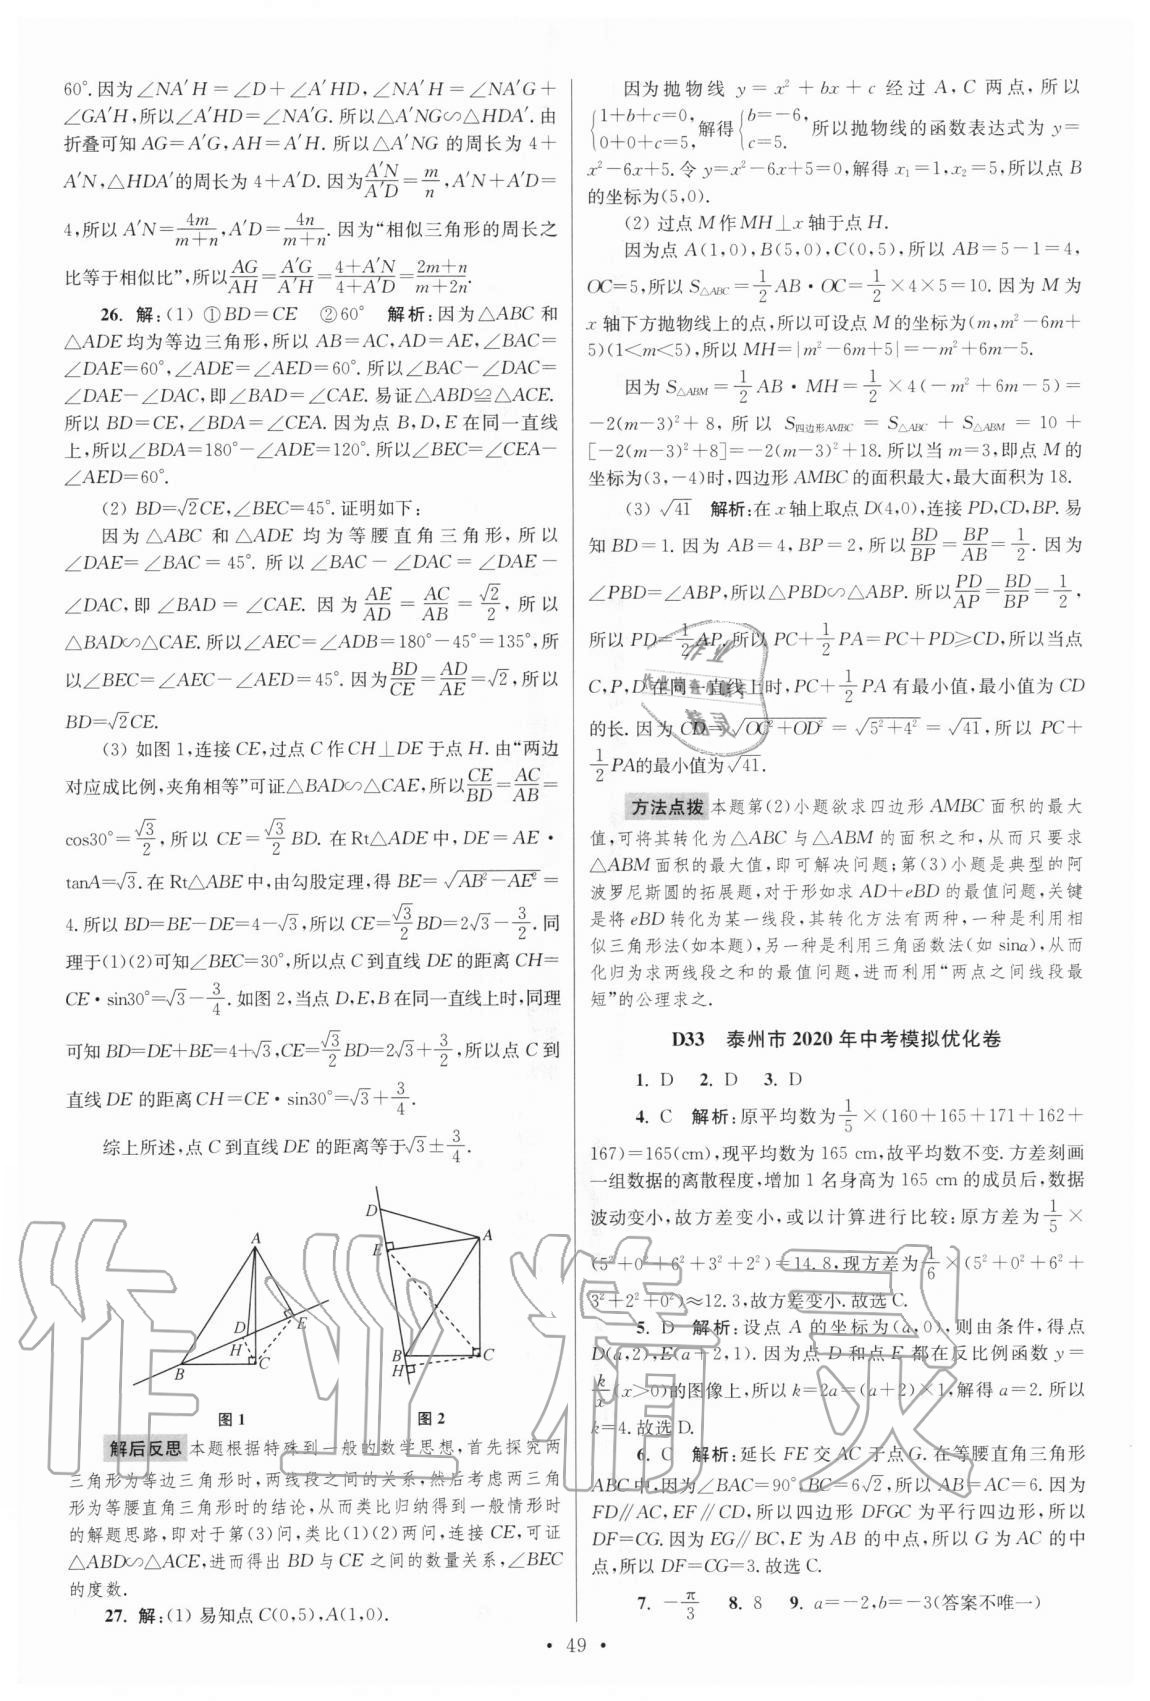 60°.因为∠NA′H=∠D+∠A′HD,∠NA′H=∠NA′G+
∠GA′H,所以∠A′HD=∠NA′G.所以△A′NG∽△HDA′.由
折叠可知AG=A′G,AH=A′H.所以△A′NG的周长为4+
A′N,△HDA′的周长为4+A′D.因为A′N/A′D=m/n,A′N+A′D=
4,所以A′N=4m/(m+n),A′D=4n/(m+n).因为“相似三角形的周长之
比等于相似比”,所以AG/AH=A′G/A′H=(4+A′N)/(4+A′D)=(2m+n)/(m+2n).
26. 解:(1) ①BD=CE ②60° 解析:因为△ABC和
△ADE均为等边三角形,所以AB=AC,AD=AE,∠BAC=
∠DAE=60°,∠ADE=∠AED=60°.所以∠BAC-∠DAC=
∠DAE-∠DAC,即∠BAD=∠CAE.易证△ABD≌△ACE.
所以BD=CE,∠BDA=∠CEA.因为点B,D,E在同一直线
上,所以∠BDA=180°-∠ADE=120°.所以∠BEC=∠CEA-
∠AED=60°.
(2) BD=√2CE,∠BEC=45°.证明如下:
因为△ABC和△ADE均为等腰直角三角形,所以
∠DAE=∠BAC=45°.所以∠BAC-∠DAC=∠DAE-
∠DAC,即∠BAD=∠CAE.因为AE/AD=AC/AB=√2/2,所以
△BAD∽△CAE.所以∠AEC=∠ADB=180°-45°=135°,所
以∠BEC=∠AEC-∠AED=45°.因为BD/CE=AD/AE=√2,所以
BD=√2CE.
(3) 如图1,连接CE,过点C作CH⊥DE于点H.由“两边
对应成比例,夹角相等”可证△BAD∽△CAE,所以CE/BD=AC/AB=
cos30°=√3/2,所以CE=√3/2BD.在Rt△ADE中,DE=AE·
tanA=√3.在Rt△ABE中,由勾股定理,得BE=√(AB²-AE²)=
4.所以BD=BE-DE=4-√3,所以CE=√3/2BD=2√3-3/2.同
理于(1)(2)可知∠BEC=30°,所以点C到直线DE的距离CH=
CE·sin30°=√3-3/4.如图2,当点D,E,B在同一直线上时,同理
可知BD=DE+BE=4+√3,CE=√3/2BD=2√3+3/2,所以点C到
直线DE的距离CH=CE·sin30°=√3+3/4.
综上所述,点C到直线DE的距离等于√3±3/4.
A
D
E
H
B
C
图1
D
A
E
B
C
H
图2
解后反思 本题根据特殊到一般的数学思想,首先探究两
三角形为等边三角形时,两线段之间的关系,然后考虑两三角
形为等腰直角三角形时的结论,从而类比归纳得到一般情形时
的解题思路,即对于第(3)问,类比(1)(2)两问,连接CE,可证
△ABD∽△ACE,进而得出BD与CE之间的数量关系,∠BEC
的度数.
27. 解:(1) 易知点C(0,5),A(1,0).
因为抛物线y=x²+bx+c经过A,C两点,所以
{1+b+c=0, 0+0+c=5,解得{b=-6, c=5.所以抛物线的函数表达式为y=
x²-6x+5.令y=x²-6x+5=0,解得x₁=1,x₂=5,所以点B
的坐标为(5,0).
(2) 过点M作MH⊥x轴于点H.
因为点A(1,0),B(5,0),C(0,5),所以AB=5-1=4,
OC=5,所以S△ABC=1/2AB·OC=1/2×4×5=10.因为M为
x轴下方抛物线上的点,所以可设点M的坐标为(m,m²-6m+
5)(1<m<5),所以MH=|m²-6m+5|=-m²+6m-5.
因为S△ABM=1/2AB·MH=1/2×4(-m²+6m-5)=
-2(m-3)²+8,所以S四边形AMBC=S△ABC+S△ABM=10+
[-2(m-3)²+8]=-2(m-3)²+18.所以当m=3,即点M的
坐标为(3,-4)时,四边形AMBC的面积最大,最大面积为18.
(3) √41 解析:在x轴上取点D(4,0),连接PD,CD,BP.易
知BD=1.因为AB=4,BP=2,所以BD/BP=BP/AB=1/2.因为
∠PBD=∠ABP,所以△PBD∽△ABP.所以PD/AP=BD/BP=1/2,
所以PD=1/2AP.所以PC+1/2PA=PC+PD≥CD,所以当点
C,P,D在同一直线上时,PC+1/2PA有最小值,最小值为CD
的长.因为CD=√(OC²+OD²)=√(5²+4²)=√41,所以PC+
1/2PA的最小值为√41.
方法点拨 本题第(2)小题欲求四边形AMBC面积的最大
值,可将其转化为△ABC与△ABM的面积之和,从而只要求
△ABM面积的最大值,即可解决问题;第(3)小题是典型的阿
波罗尼斯圆的拓展题,对于形如求AD+eBD的最值问题,关键
是将eBD转化为某一线段,其转化方法有两种,一种是利用相
似三角形法(如本题),另一种是利用三角函数法(如sinα),从而
化归为求两线段之和的最值问题,进而利用“两点之间线段最
短”的公理求之.
D33 泰州市2020年中考模拟优化卷
1. D 2. D 3. D
4. C 解析:原平均数为1/5×(160+165+171+162+
167)=165(cm),现平均数为165 cm,故平均数不变.方差刻画
一组数据的离散程度,增加1名身高为165 cm的成员后,数据
波动变小,故方差变小,或以计算进行比较:原方差为1/5×
(5²+0²+6²+3²+2²)=14.8,现方差为1/6×(5²+0²+6²+
3²+2²+0²)≈12.3,故方差变小.故选C.
5. D 解析:设点A的坐标为(a,0),则由条件,得点
D(a,2),E(a+2,1).因为点D和点E都在反比例函数y=
k/x(x>0)的图像上,所以k=2a=(a+2)×1,解得a=2.所以
k=4.故选D.
6. C 解析:延长FE交AC于点G.在等腰直角三角形
ABC中,因为∠BAC=90°,BC=6√2,所以AB=AC=6.因为
FD∥AC,EF∥CD,所以四边形DFGC为平行四边形,所以
DF=CG.因为EG∥BC,E为AB的中点,所以G为AC的中
点,所以DF=CG=3.故选C.
7. -π/3 8. 8 9. a=-2,b=-3(答案不唯一)
· 49 ·
作业精灵
作业
精灵